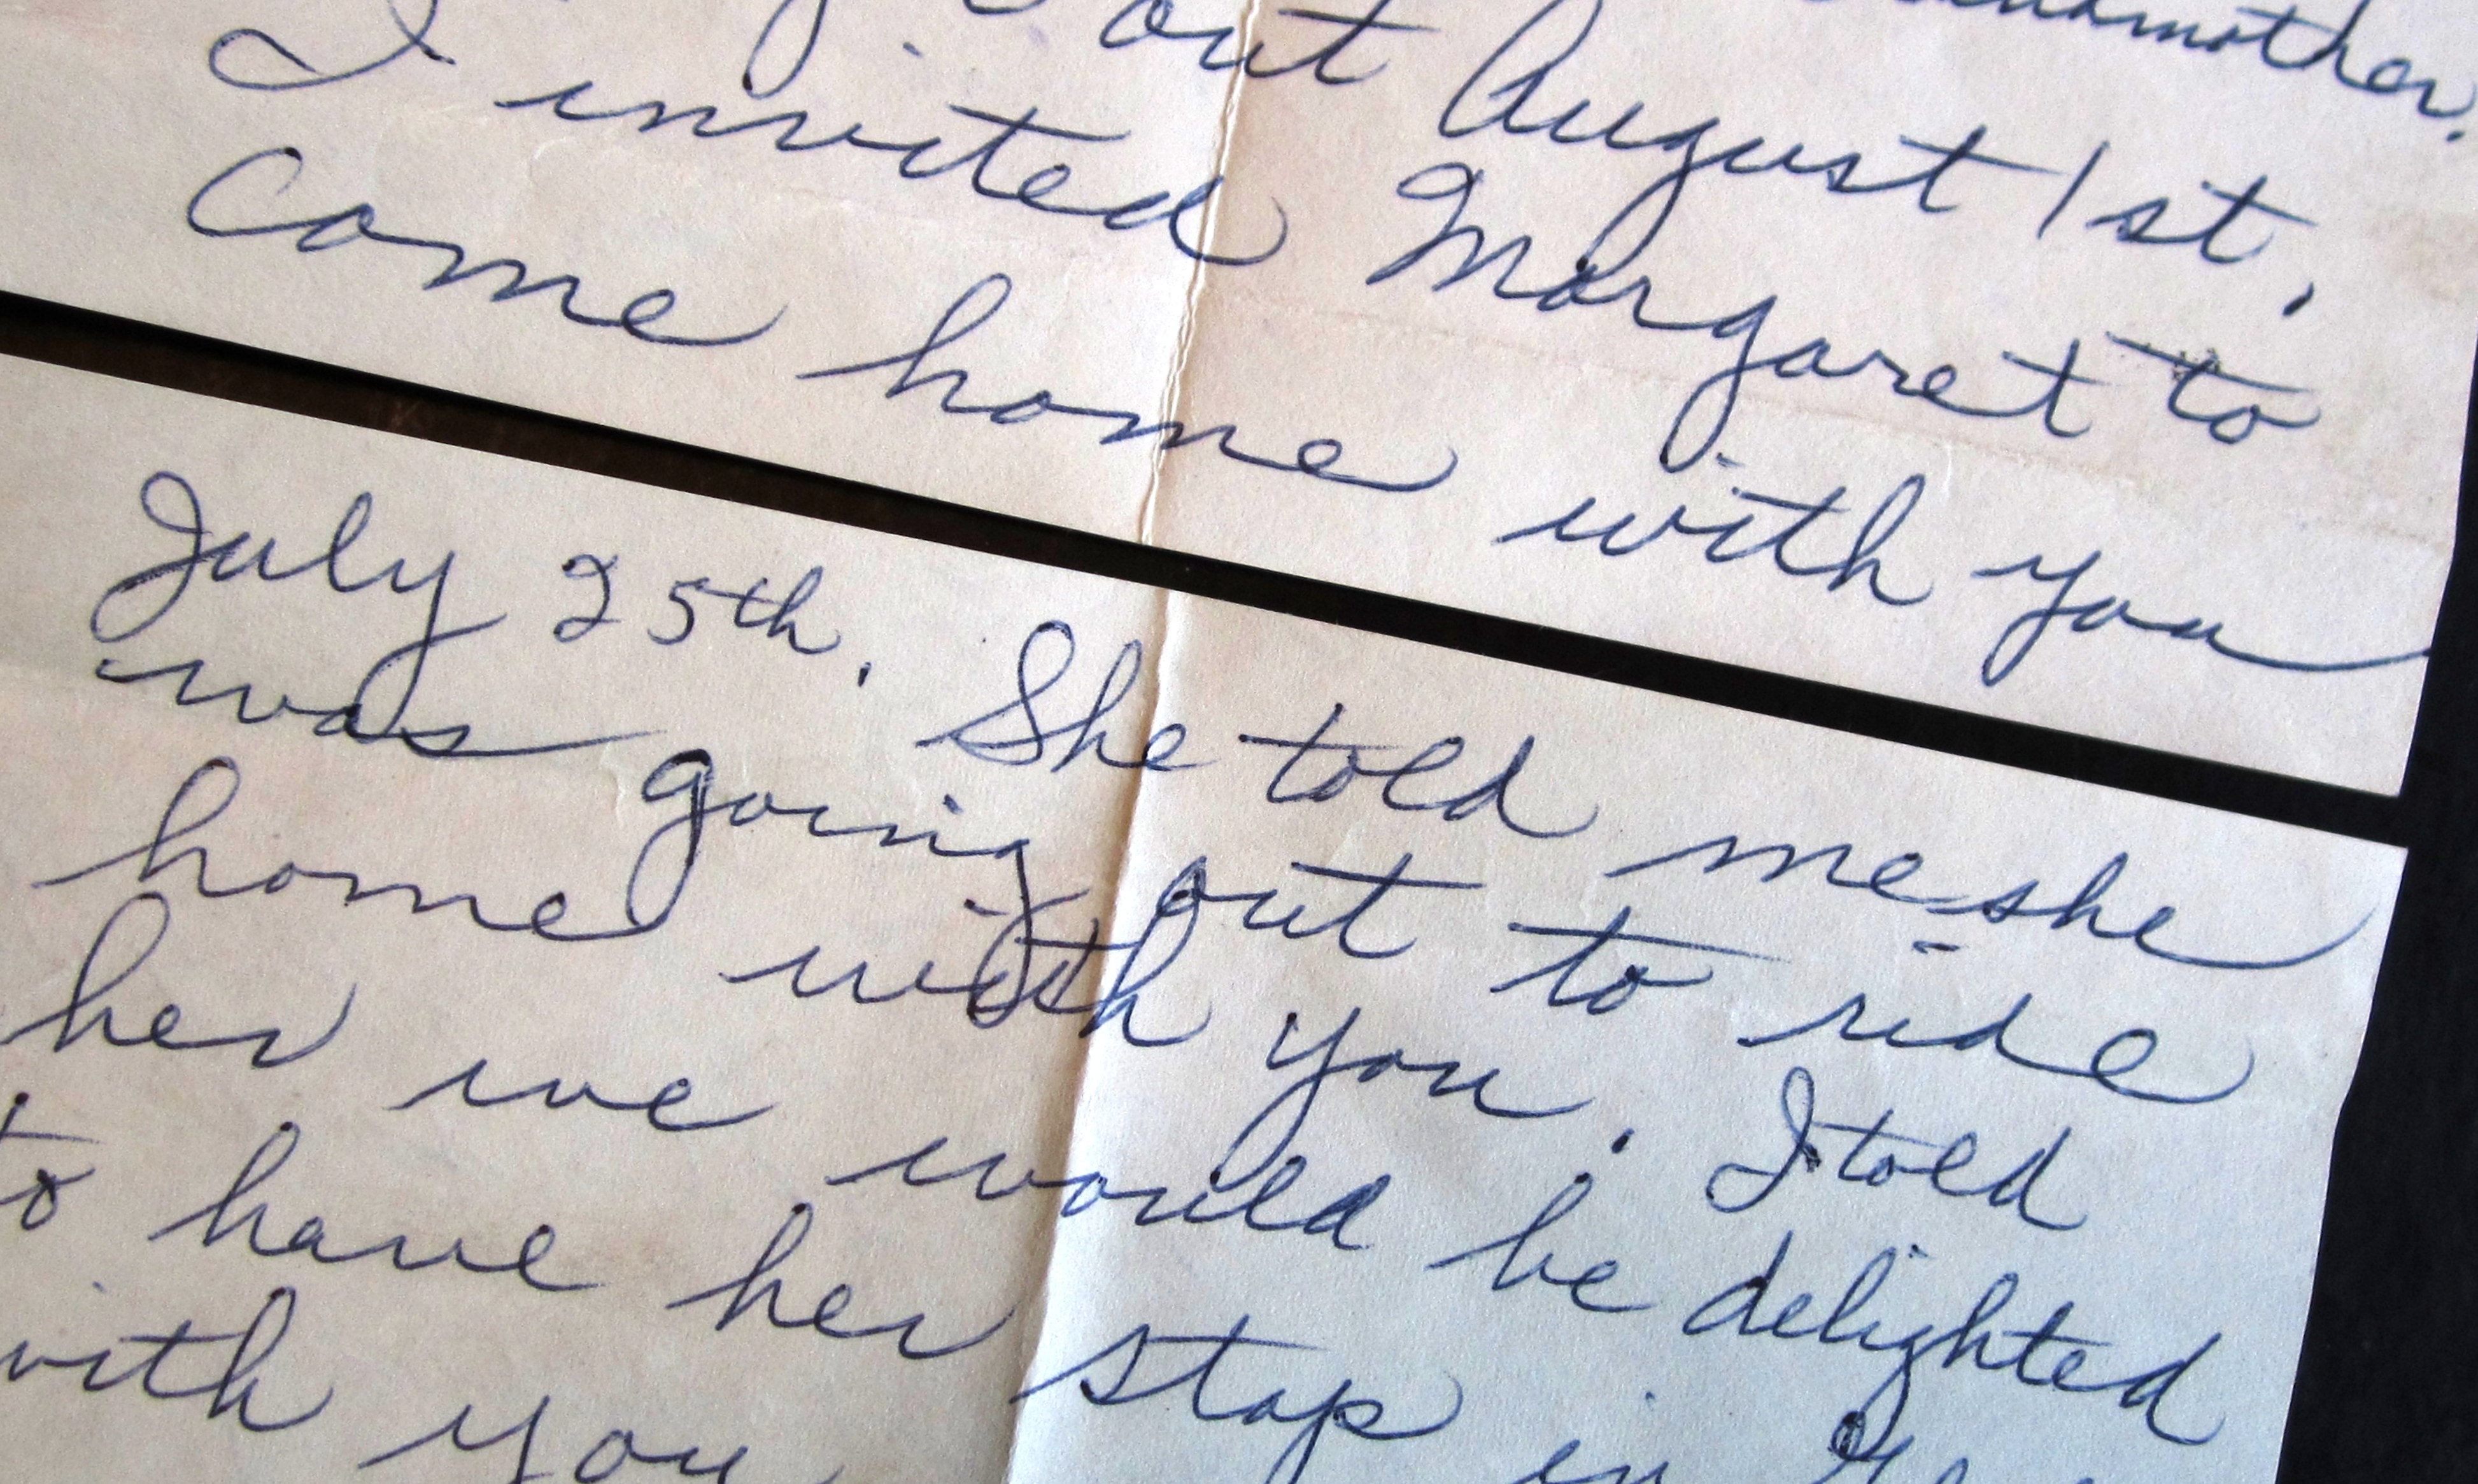 out August 1st.
I invited Margaret to
Come home with you
July 25th. She told me she
was going out to ride
home with you. I told
her we would be delighted
to have her stop in
with you